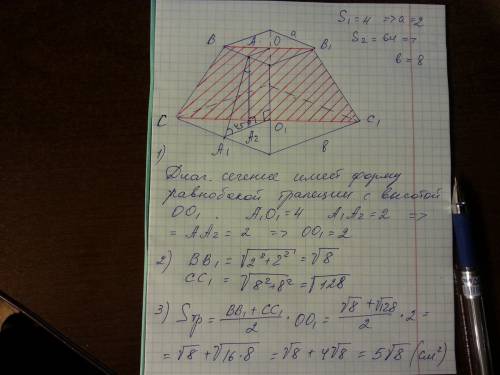 S₁ = 4 => a = 2
S₂ = 64 =>
b = 8
B A O a B₁
C A₁ A₂ 45° O₁ 8 C₁
1)
Диаг. сечение имеет форму
равнобокой трапеции с высотой
OO₁ . A₁O₁ = 4 A₁A₂ = 2 =>
= AA₂ = 2 => OO₁ = 2
2) BB₁ = √(2²+2²) = √8
CC₁ = √(8²+8²) = √128
3) Sтр = (BB₁+CC₁)/2 · OO₁ = (√8+√128)/2 · 2 =
= √8 + √(16·8) = √8 + 4√8 = 5√8 (см²)